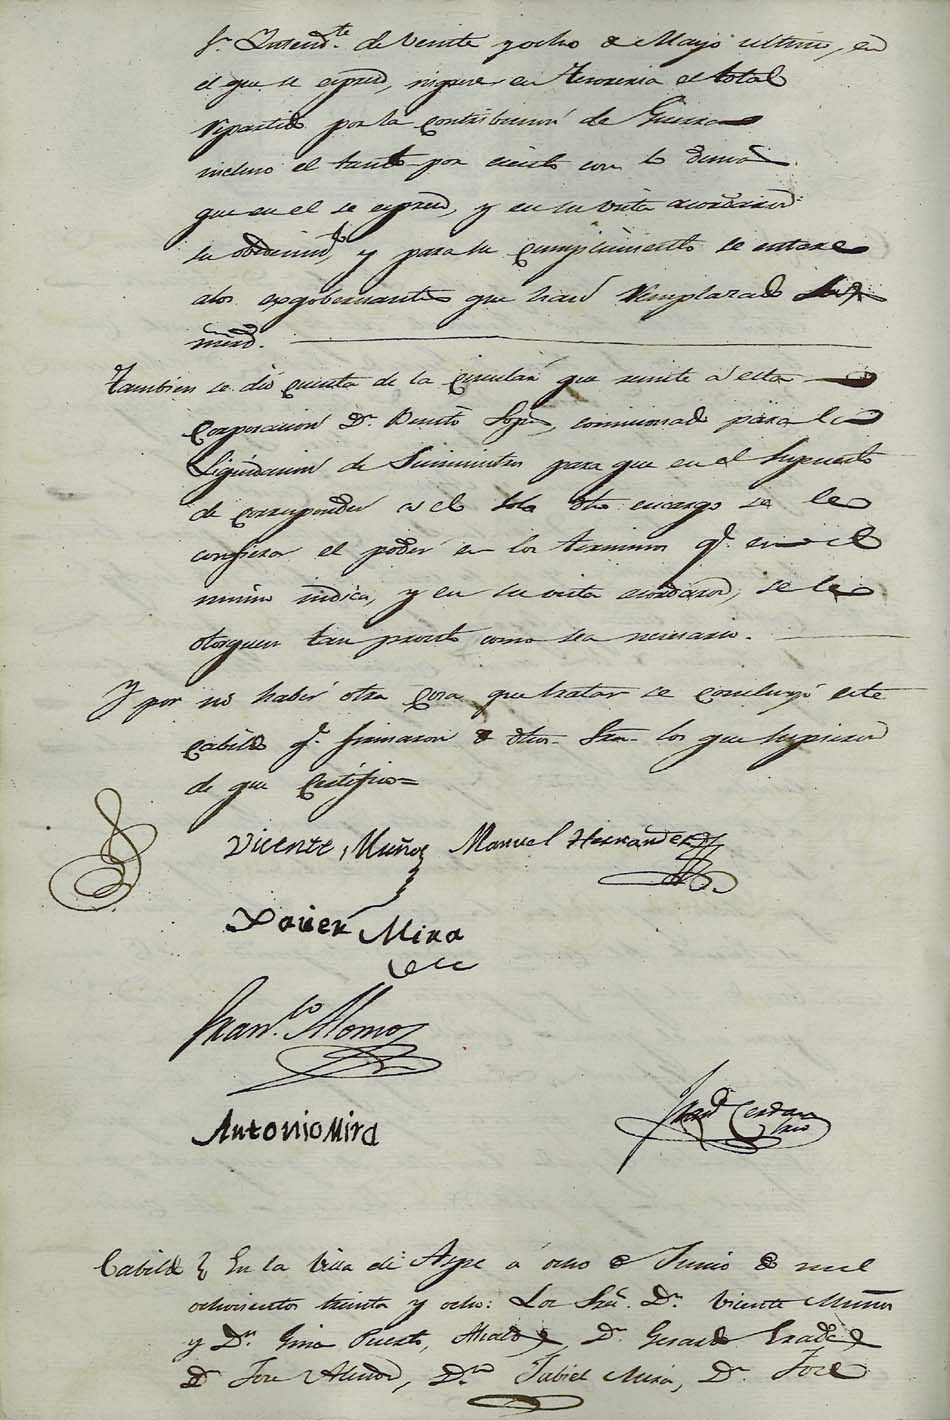 Sr. Intend.te de veinte y ocho de Mayo ultimo, en
el que se expresa, ingrese en Tesoreria el total
repartido por la contribucion de Guerra
incluso el tanto por ciento con lo demas
que en el se expresa, y en su vista acordaron
su obedecimto, y para su cumplimiento se entere
a los exgobernantes que han remplazado
Tambien se dio cuenta de la circular que remite a esta
Corporacion Dn. Benito Lopez, comisionado para la
Liquidacion de Suministros para que en el supuesto
de corresponder a el solo dho encargo se le
confiera el poder en los terminos q.e en el
mismo indica, y en su vista acordaron, se le
otorguen tan pronto como sea necesario.
Y por no haber otra cosa que tratar se concluyó este
Cabildo q.e firmaron de dhos Sres. los que supieron
de que Certifico=
Vicente Muñoz Manuel Hernandez
Xavier Mira
Fran.co Alonso
Antonio Mira
Cerdan
Srio
Cabildo En la Villa de Aspe á ocho de Junio de mil
ochocientos treinta y ocho: Los Sres. Dn. Vicente Muñoz
y Dn. Puerto, Alcaldes, Dn. Gerardo
Dn. Jose Dn. Mira, Dn. José